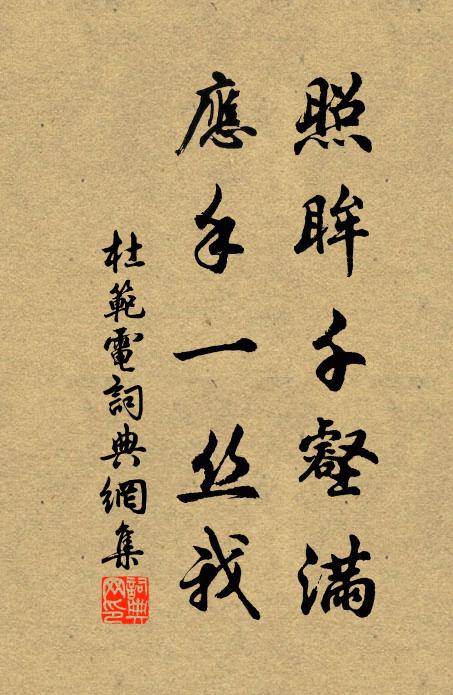 照眸千壑滿
應手一丝我
杜範電詞典網集
詞典
网印